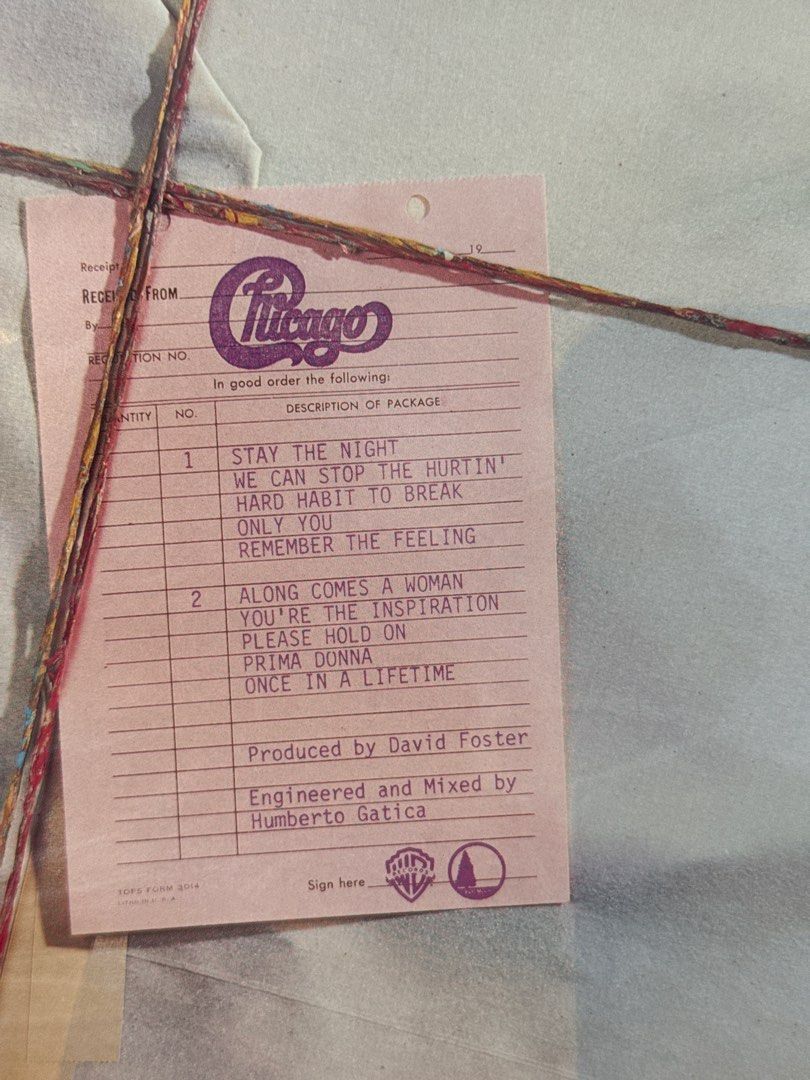 19
Receipt
RECEI FROM
Chicago
By
RE TION NO.
In good order the following:
NTITY NO. DESCRIPTION OF PACKAGE
1 STAY THE NIGHT
WE CAN STOP THE HURTIN'
HARD HABIT TO BREAK
ONLY YOU
REMEMBER THE FEELING
2 ALONG COMES A WOMAN
YOU'RE THE INSPIRATION
PLEASE HOLD ON
PRIMA DONNA
ONCE IN A LIFETIME
Produced by David Foster
Engineered and Mixed by
Humberto Gatica
Sign here
WB RECORDS
TOPS FORM 3014
LITHO IN U. S. A.